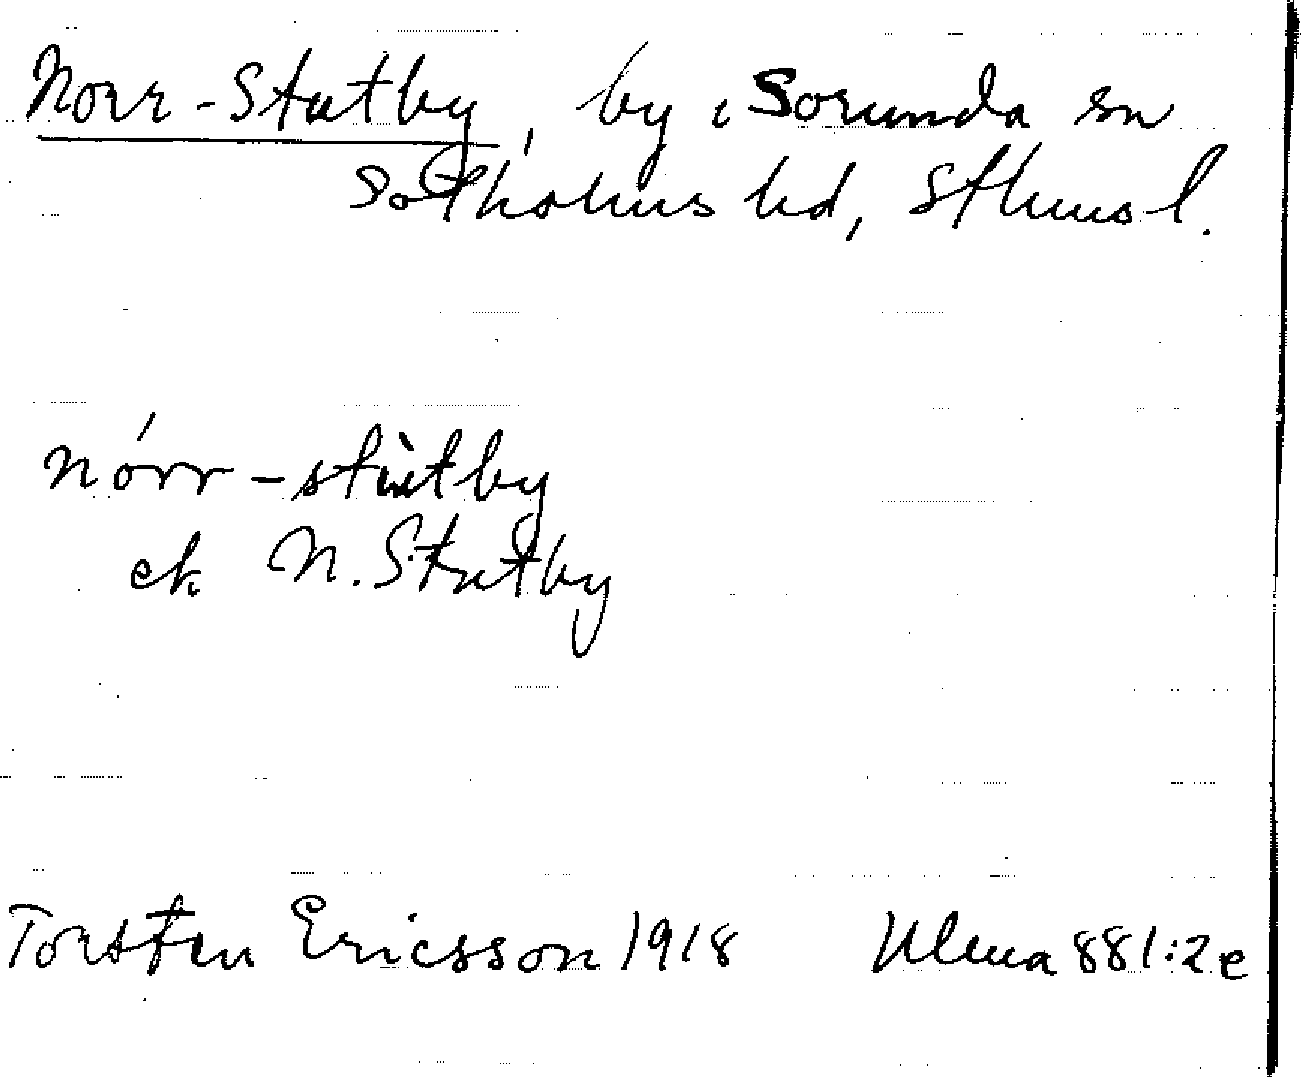 Norr-Stutby, by i Sorunda sn
Sotholms hd, Sthms l.
nórr-stùtby
ek N. Stutby
Torsten Ericsson 1918 Ulma 881:2e